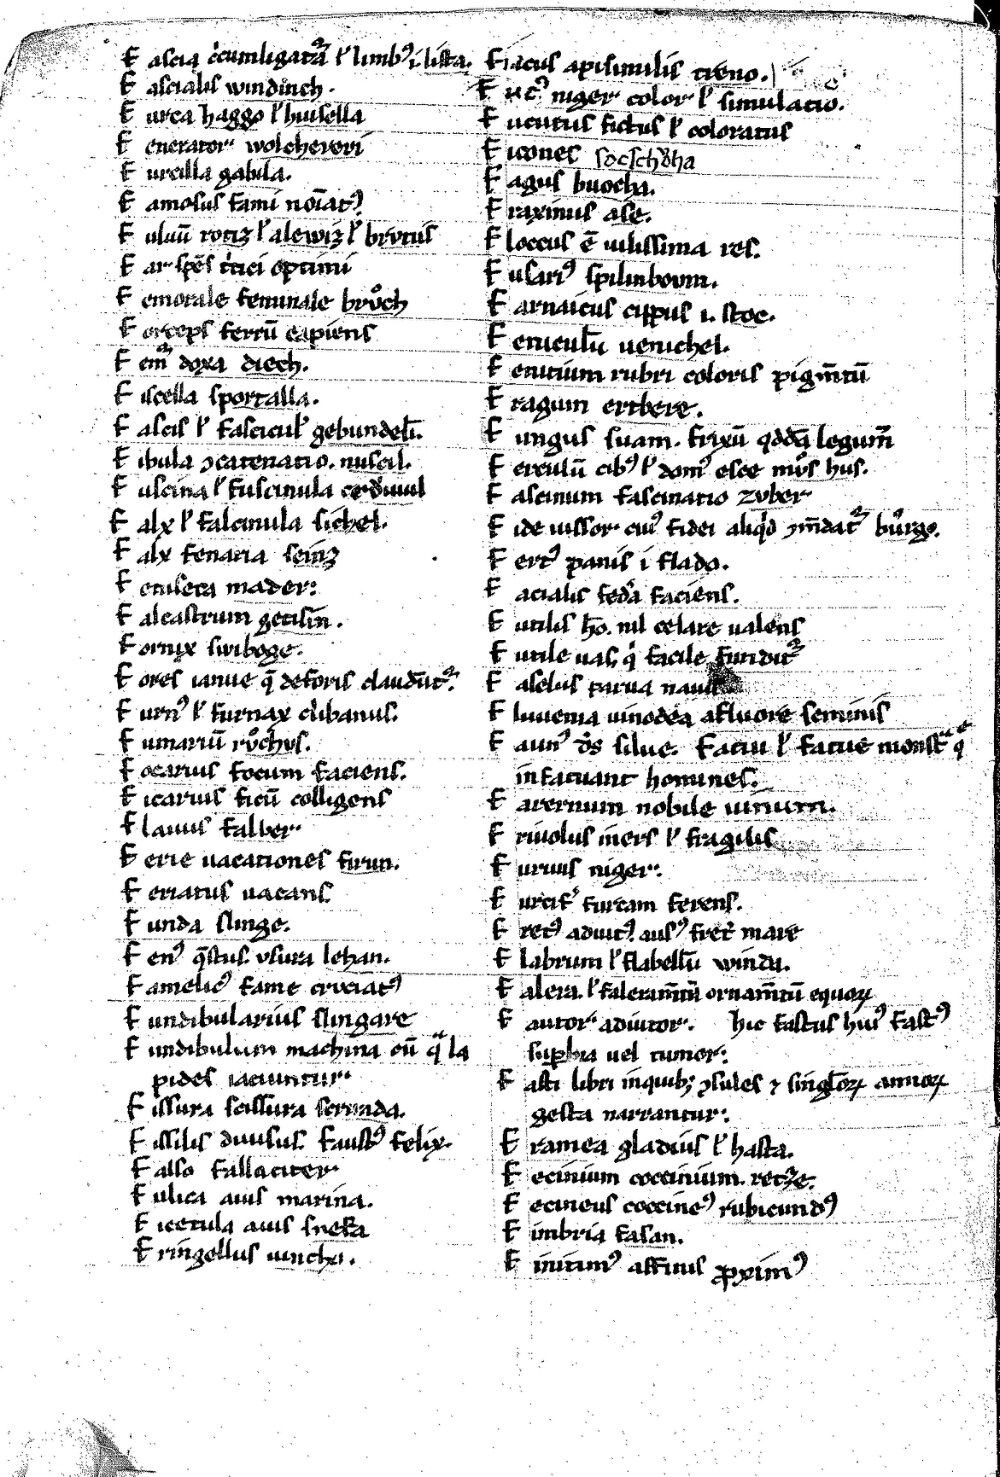 F ascia c̓cumligat᷑a ł limb᷒ .i. lista.
F ascialis windinch.
F urca haggo ł huisella
F enerator wolchereri
F urcilla gabila.
F amosus fami noīat᷒.
F uluū rotiz ł alewiz ł brvtus
F ar spēs t̓tici optimi
F emorale feminale brůch
F orceps ferrū capiens
F em᷑ doxa diech.
F iscella sportalla.
F ascis ł fascicul᷒ gebundel̄.
F ibula ɔcatenatio. nuscil.
F uscina ł fuscinula
F alx ł falcinula sichel.
F alx fenaria seinz
F eniseca mader:
F alcastrum getisin̄.
F ornix swiboge.
F ores ianue q̄ deforis claudūt᷑.
F urn᷒ ł furnax clibanus.
F umariū růchvs.
F ocarius focum faciens.
F icarius ficū colligens
F lauus falber
F erie uacationes firun.
F eriatus uacans.
F unda slinge.
F en᷒ q̄stus. vsura lehan.
F amelic᷒ fame crvciat᷒
F undibularius slingare
F undibulum machina cū qᵃ la
pides iaciuntur
F issura scissura scrunda.
F issilis diuisus. Faust᷒ felix.
F also fallaciter
F ulica auis marina.
F icetula auis snefa
F ringellus uincho.
F iacus apisimilis treno.
F uc᷒ niger color ł simulatio.
F ucutus fictus ł coloratus
F icones
F agus buocha.
F raxinus asc.
F loccus ē uilissima res.
F usari᷒ spilinbovm.
F arnaicus cippus .i. stoc.
F eniculū uenichel.
F enitium rubri coloris pigm̄tū
F ragum ertbere.
F ungus suam. frixū qddā legum̄
F erculū cib᷒ ł dom᷒ esce můs hus.
F ascinum fascinatio zvber
F ide iussor cui᷒ fidei aliqd ɔm̄dat᷑ bůrgo.
F ert᷒ panis .i. flado.
F acialis fedā faciens.
F utilis hō. nil celare ualens
F utile uas, q facile fundit᷑
F aselus parua nauis
F luuenia uinodea afluore seminis
F aun᷒ d̄s silue. Fatui ł fatue monstᵃ q̄
infatuant homines.
F avernum nobile uinum.
F riuolus iners ł fragilis
F uruus niger.
F urcif᷒ furcam ferens.
F ret᷒ adiut᷒. aus᷒ fret᷒ mare
F labrum ł flabellū winda.
F alera. ł faleram̄tū ornam̄tū equoꝝ
F autor adiutor. hic fastus hui᷒ fast᷒
suꝑbia uel tumor:
F asti libri inquib; ɔsules ⁊ singloꝝ annoꝝ
gesta narrantur:
F ramea gladius ł hasta.
F ecinium coccinium.
F ecineus coccine᷒ rubicund᷒
F imbria fasan.
F initim᷒ affinis ꝓxim᷒